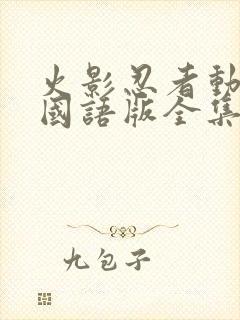 火影忍者動
國語版全集
九包子